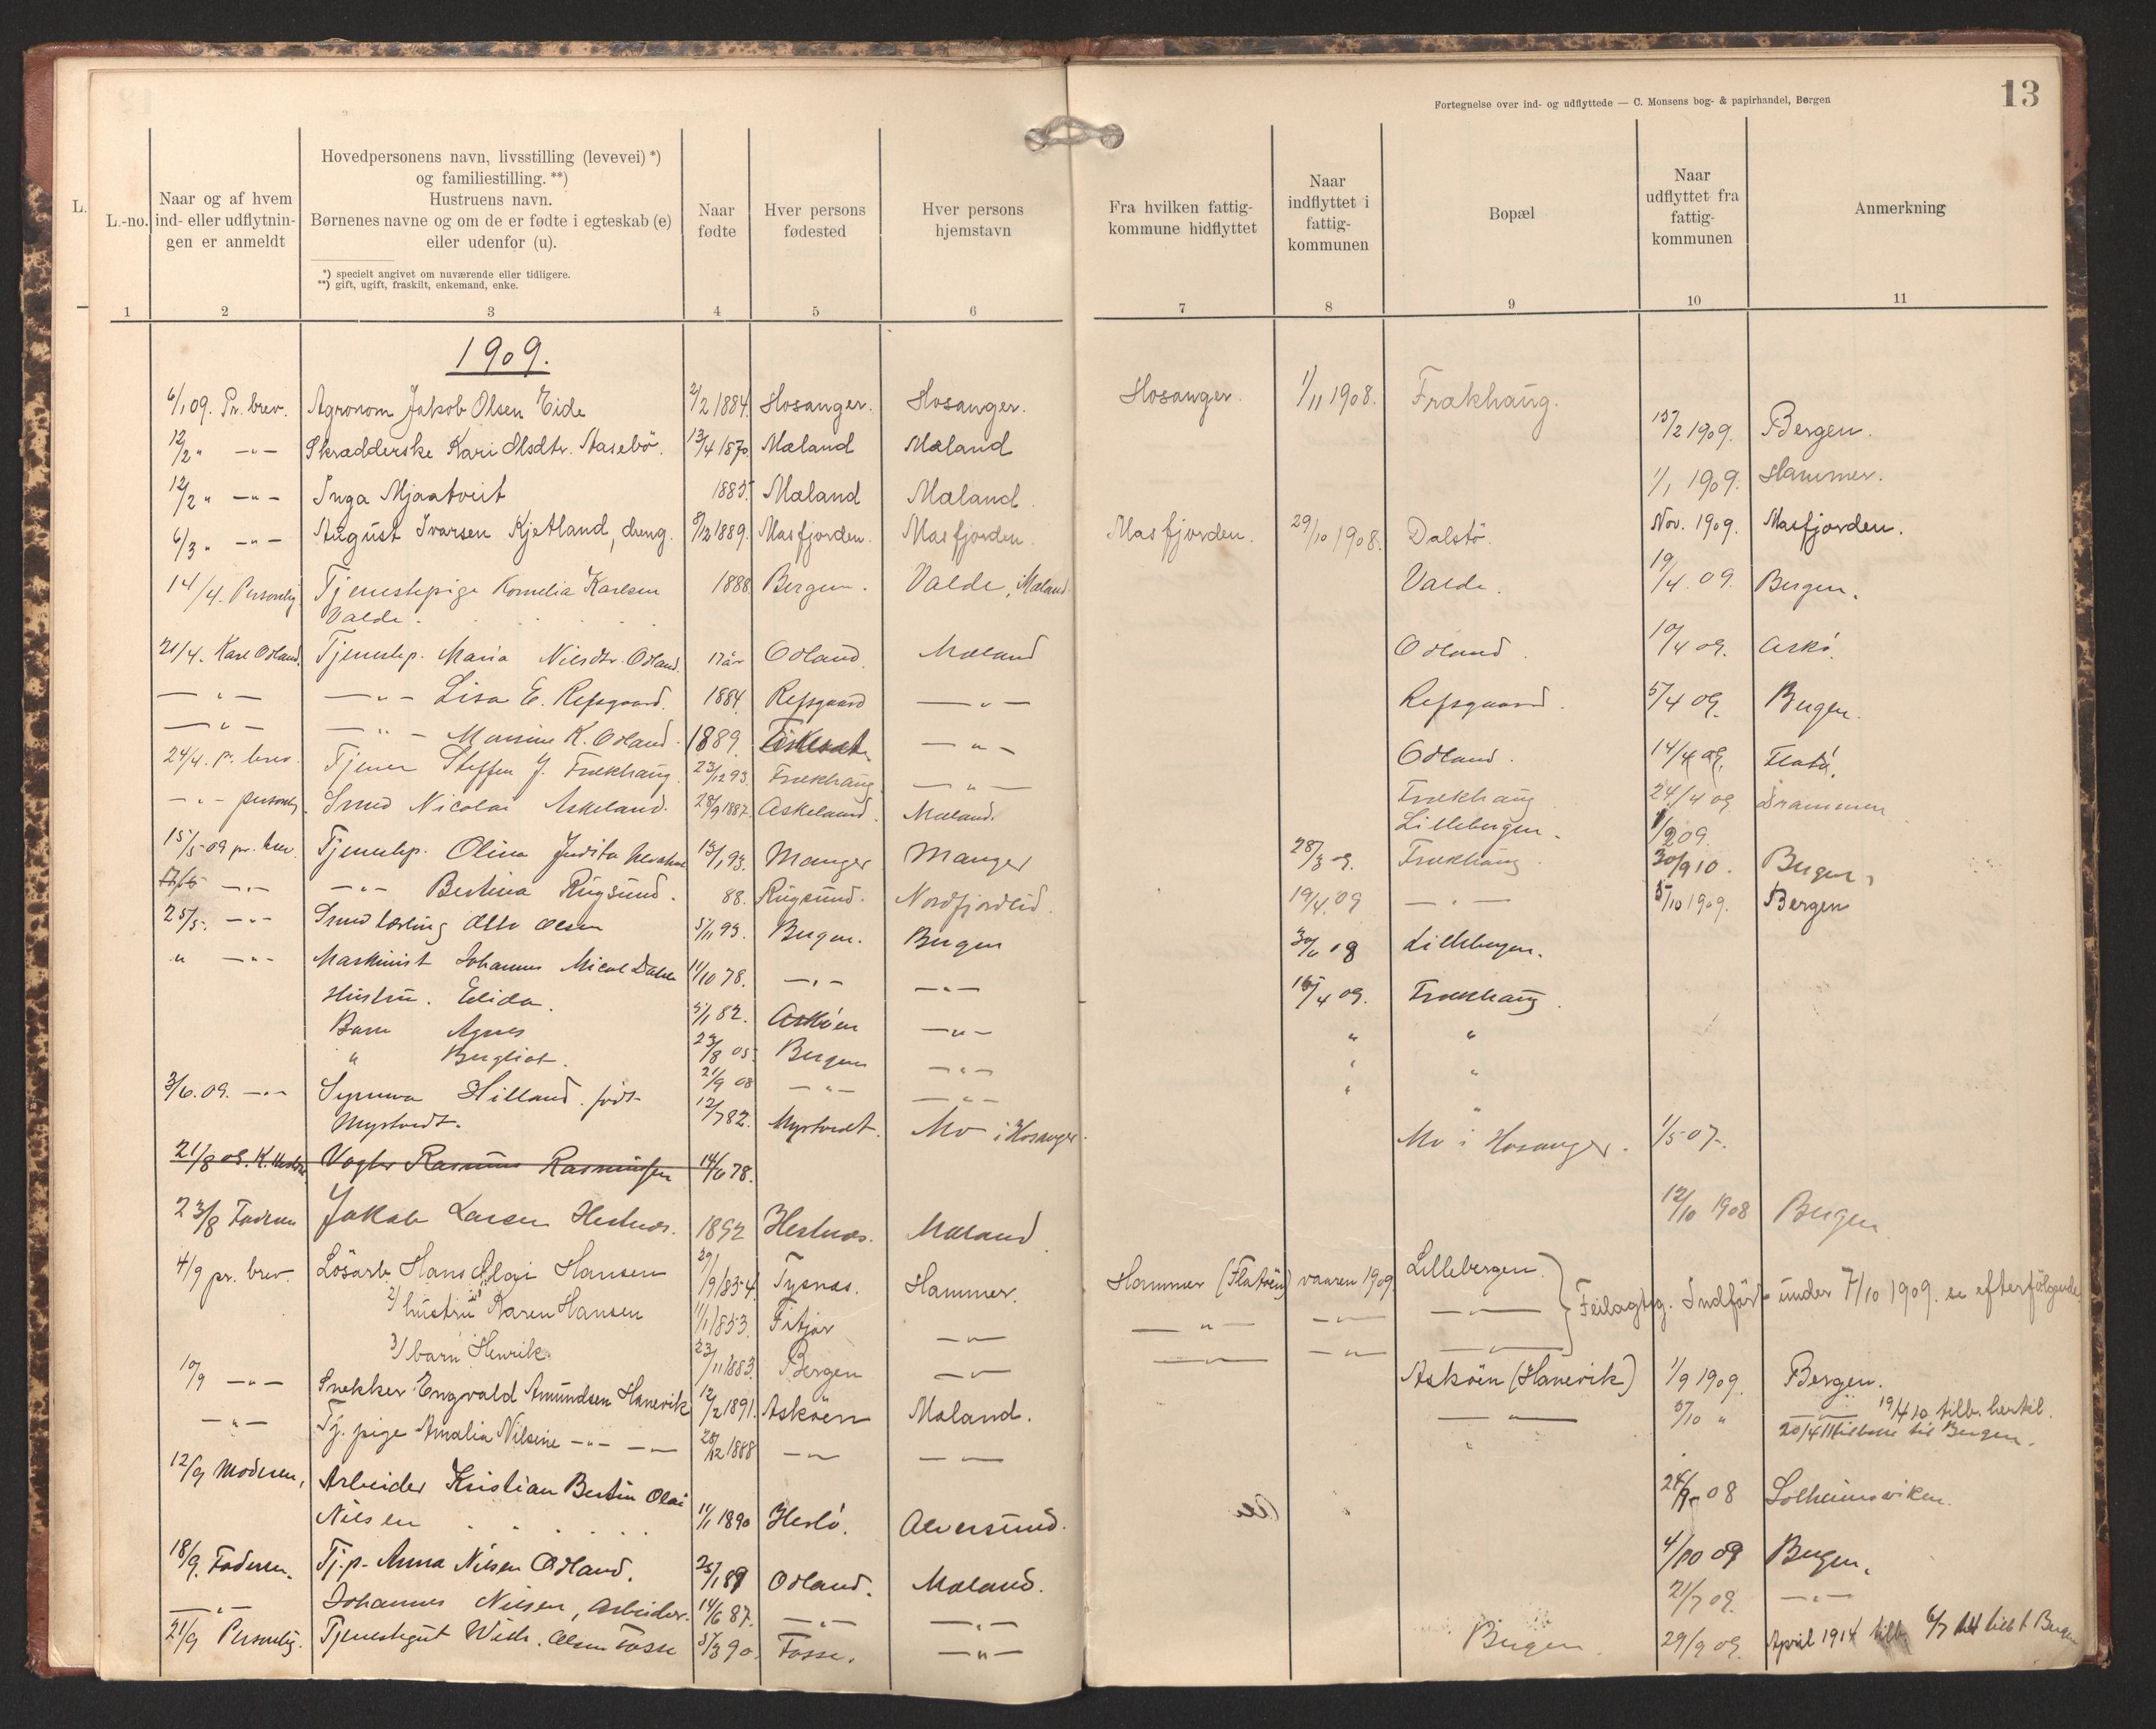 13
Fortegnelse over ind- og udflyttede — C. Monsens bog- & papirhandel, Bergen
L.
L.-no.
Naar og af hvem
ind- eller udflytnin-
gen er anmeldt
Hovedpersonens navn, livsstilling (levevei) *)
og familiestilling. **)
Hustruens navn.
Børnenes navne og om de er fødte i egteskab (e)
eller udenfor (u).
*) specielt angivet om nuværende eller tidligere.
**) gift, ugift, fraskilt, enkemand, enke.
Naar
fødte
Hver persons
fødested
Hver persons
hjemstavn
Fra hvilken fattig-
kommune hidflyttet
Naar
indflyttet i
fattig-
kommunen
Bopæl
Naar
udflyttet fra
fattig-
kommunen
Anmerkning
1 2 3 4 5 6 7 8 9 10 11
1909.
6/1 09. Pr. brev. Agronom Jakob Olsen Eide 2/2 1884. Hosanger. Hosanger. Hosanger. 1/11 1908. Frækhaug.
12/2 " —"— Skrædderske Kari Olsdtr. Aasebö. 13/4 1870. Mæland Mæland 15/2 1909. Bergen.
12/2 " —"— Inga Mjaatveit 1885. Mæland Mæland. 1/1 1909. Hammer.
6/3 " —"— August Ivarsen Kjetland, dreng. 8/2 1889. Masfjorden. Masfjorden. Masfjorden. 29/10 1908. Dalstö. Nov. 1909. Masfjorden.
14/4. Personlig Tjenestepige Kornelia Karlsen 1888 Bergen. Valde, i Mæland. Valde. 19/4. 09. Bergen.
Valde.
21/4. Karl Odland. Tjenestep. Maria Nilsdtr. Odland. 17 år Odland. Mæland Odland. 10/4 09. Askö.
—"— —"— Lisa E. Refsgaard. 1884. Refsgaard —"— Refsgaard. 5/4 09. Bergen.
—"— —"— K. Odland. 1889. —"— Odland. 14/4 09. Flatö.
24/4. p. brev. Tjener Steffen J. Frækhaug. 23/12 93. Frækhaug —"— Frækhaug 24/4 09 Drammen
—"— personlig. Smed Nicolai Askeland. 28/9 1887. Askeland. Mæland. Lillebergen. 1/2 09.
15/5 09 pr. brev. Tjenestep. Olina Judita 13/1 93. Manger Manger 28/3 09. Frækhaug. 30/9 10. Bergen.
—"— —"— Bertina Rugsund. 88. Rugsund. Nordfjordeid. 19/4. 09 —"— 5/10 1909. Bergen
25/5. —"— Smedlærling Otto Olsen 5/11 93. Bergen. Bergen 08 Lillebergen.
" —"— Maskinist Johannes Dahle 11/10 78. —"— —"— 15/4 09. Frækhaug.
Hustru. Elida. 5/1 82. Askóen —"— " "
Barn Agnes 23/8 05. Bergen —"— " "
" Bergliot. 21/9 08 —"— —"— " "
3/6. 09. —"— Synneva Hilland. född 12/7 82. Myrtvedt. Mo i Hosanger. Mo i Hosanger. 1/5 07.
Myrtvedt.
21/8 09. Vogter Rasmus Rasmussen 14/6 78.
23/8 Faderen Jakob Larsen Hestnæs. 1892 Hestnæs. Mæland. 12/10 1908 Bergen
4/9 pr. brev. Lösarb. Hans Olai Hansen 29/9 1854. Tysnæs. Hammer. Hammer (Flatöen) vaaren 1909. Lillebergen. Feilagtig. Indført under 7/10 1909. se efterfölgende.
2/ hustru Karen Hansen 11/1 1853. Fitjar —"— —"— —"— —"—
3/ barn Henrik. 23/11 1883. Bergen —"— —"— —"— —"—
10/9 —"— Snekker Engvald Amundsen Hanevik 12/2 1891. Asköen Mæland. Asköen (Hanevik) 1/9 1909. Bergen.
—"— Tj. pige Amalia Nilsine —"— —"— 28/12 1888 —"— —"— —"— 5/10 " —"— 19/4 10 tilb. hertil.
20/4 11 tilbage til Bergen.
12/9 Moderen, Arbeider Kristian Bertin Olai 24/9 08 Solheimsviken.
Nilsen 11/1 1890 Herlö. Alversund.
18/9. Faderen. Tj.p. Anna Nilsen Odland. 25/1 89 Odland. Mæland. 4/10 09 Bergen.
—"— Johannes Nilsen, Arbeider. 14/6 87. —"— —"— 21/7 09. —"—
21/9 Personlig. Tjenestegut Wilh. Olsen Fosse 5/3 90. Fosse. —"— Bergen. 29/9 09. April 1914 tilb. 6/7 14 tilb t Bergen